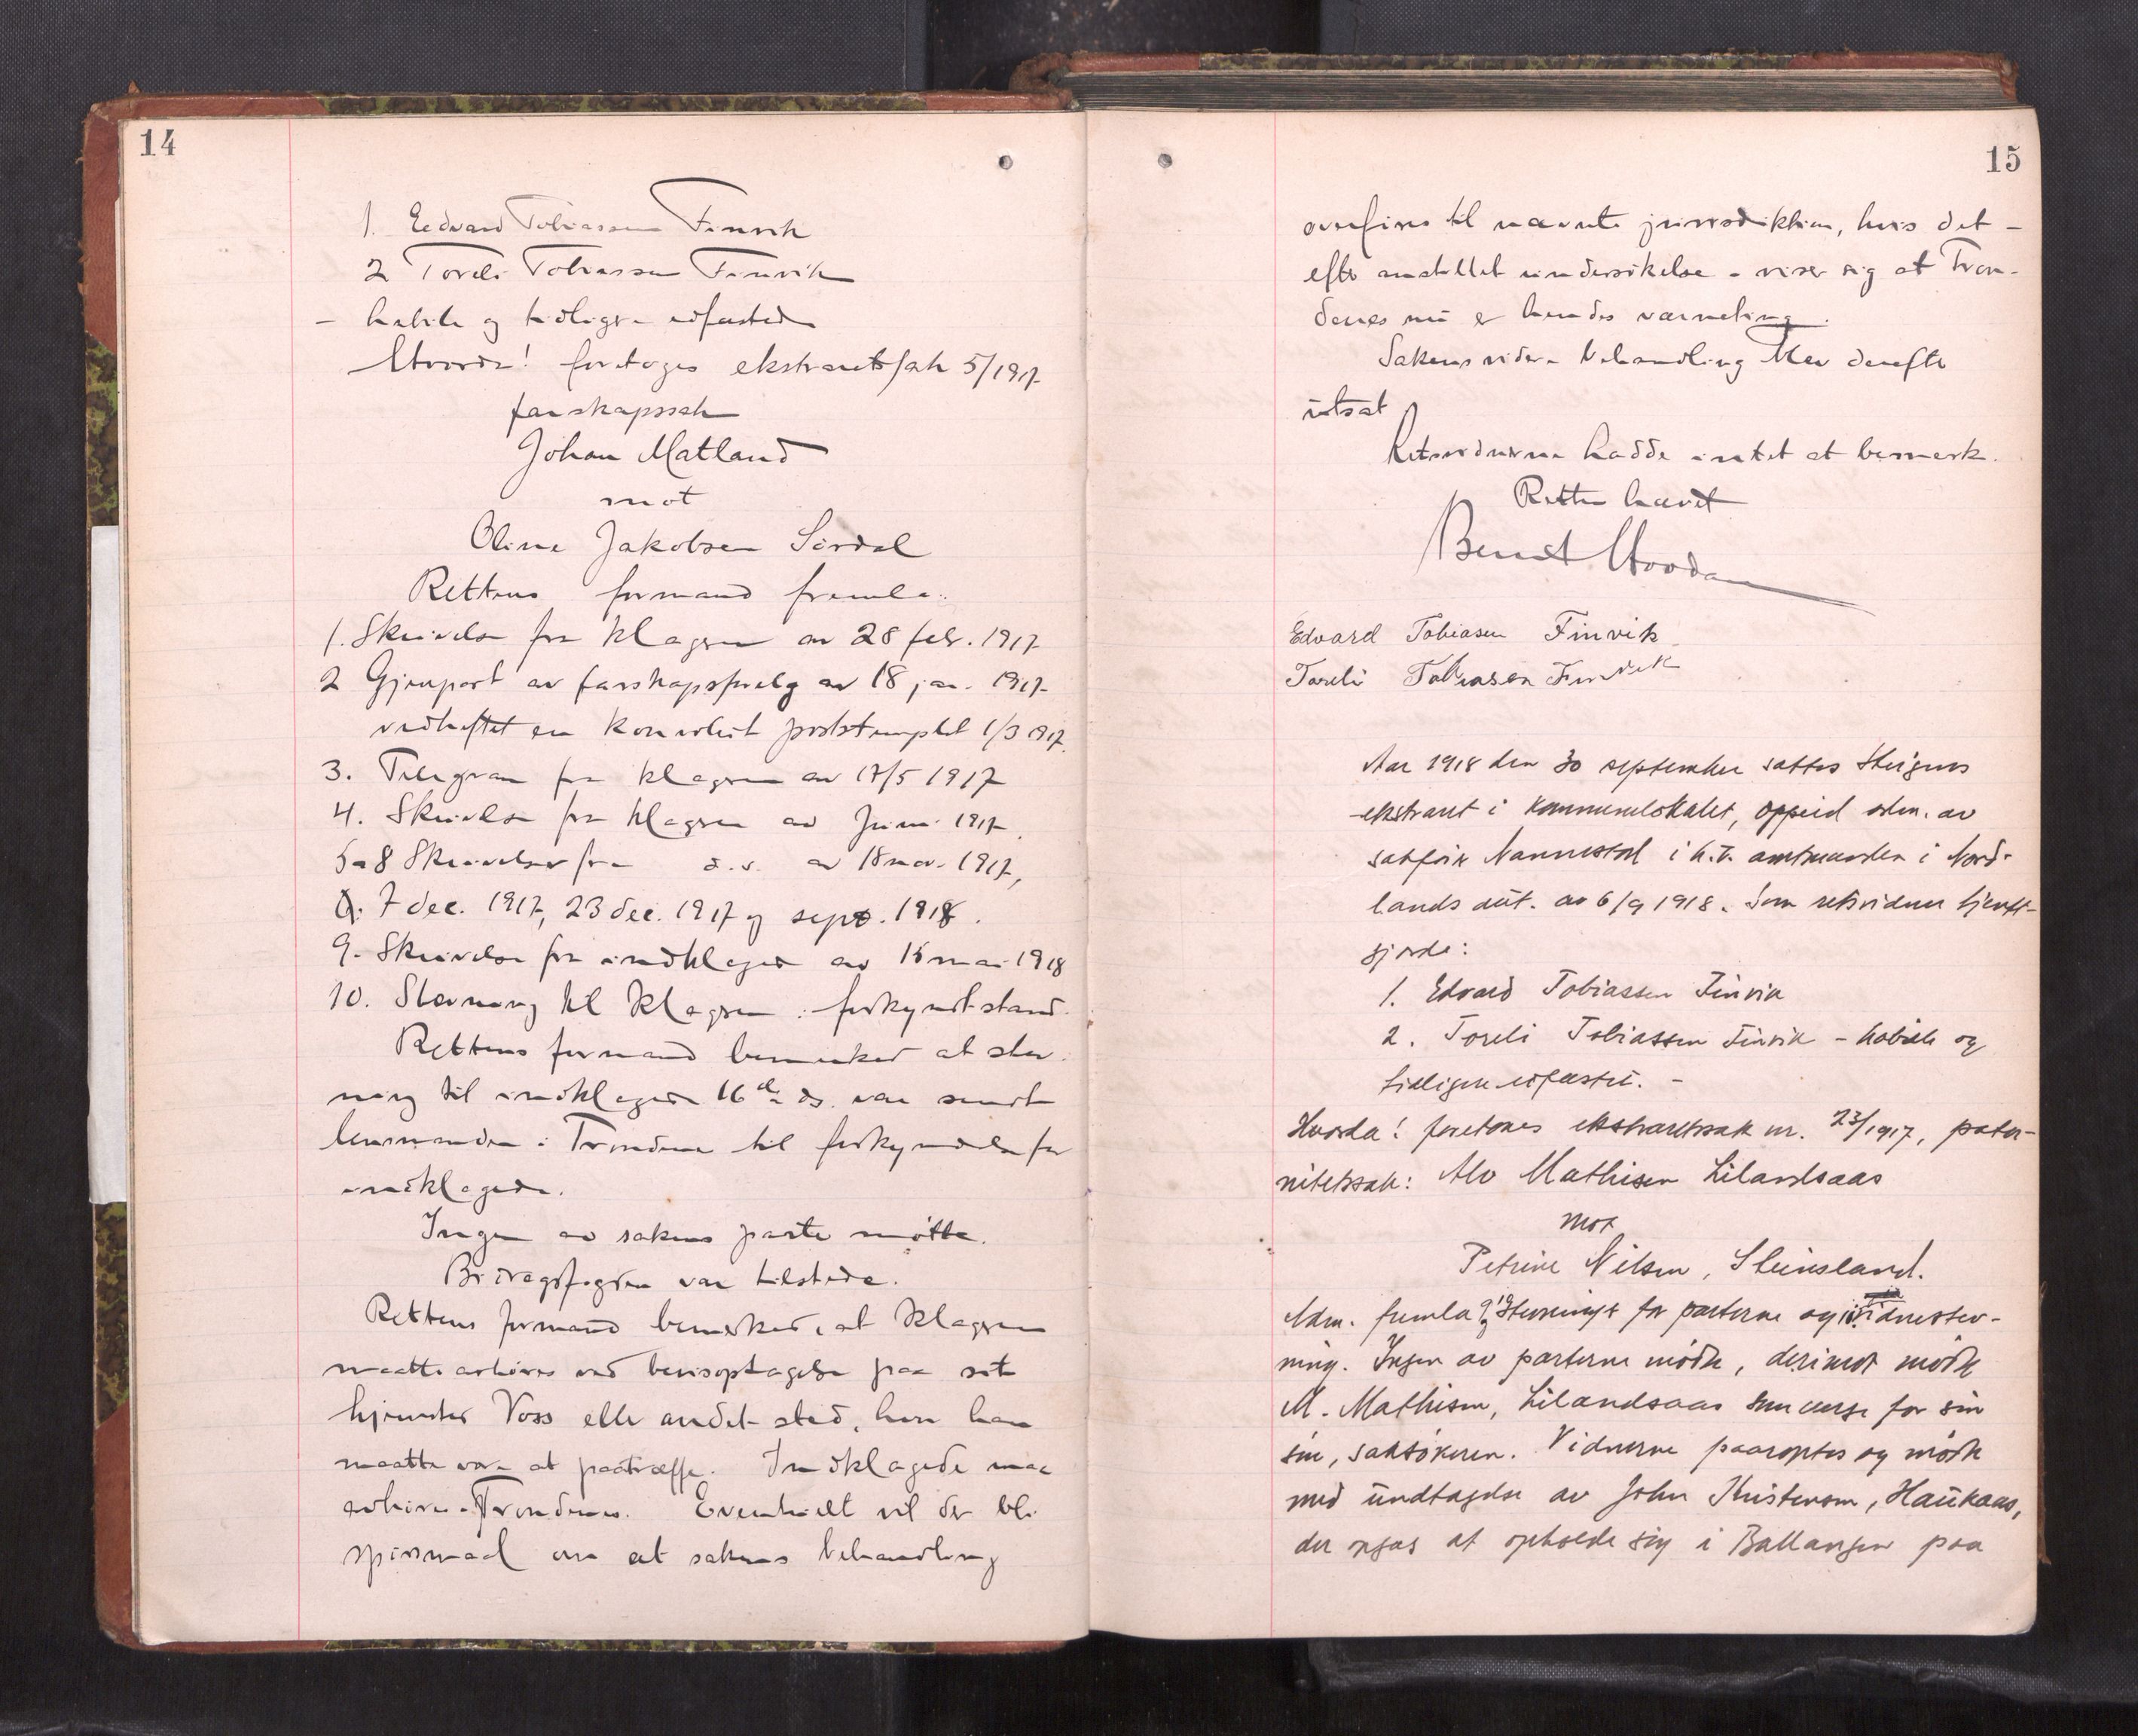 14
1. Edvard Tobiassen Finvik
2 Toreli Tobiassen Finvik
- habile og tidligere edfæstede
Hvorda! foretoges ekstraretssak 5/1917
farskapssak
Johan Matland
mot
Oline Jakobsen Sördal
Rettens formand fremla:
1. Skrivelse fra klageren av 28 febr. 1917
2 Gjenpart av farskapsforelæg av 18 jan. 1917
vedheftet en konvolut poststemplet 1/3 1917.
3. Telegram fra klageren av 17/5 1917
4. Skrivelse fra klageren av Juni 1917.
5 a 8 Skrivelser fra d.s. av 18 nov. 1917,
7 dec. 1917, 23 dec. 1917 og sept. 1918.
9. Skrivelse fra indklagede av 15 mai 1918
10. Stevning til klageren i forkyndt stand.
Rettens formand bemerket at stev-
ning til indklagede 16de ds. var sendt
lensmanden i Trondenes til forkyndelse for
indklagede.
Ingen av sakens parter mötte.
Bidragsfogden var tilstede.
Rettens formand bemerket, at klageren
maatte avhöres ved bevisoptagelse paa sit
hjemsted Voss eller andet sted, hvor han
maatte være at paatræffe. Indklagede maa
avhöres i Trondenes. Eventuelt vil der bli
spörsmaal om at sakens behandling
15
overföres til nævnte jurisdiktion, hvis det -
efter anstillet undersökelse - viser sig at Tron-
denes nu er hendes værneting.
Sakens videre behandling blev derefter
utsat
Retsvidnerne hadde intet at bemerke.
Retten hævet
Bernt Hvoda
Edvard Tobiasen Finvik
Toreli Tobiasen Finvik
Aar 1918 den 30 september sattes Steigens
ekstraret i kommunelokalet, Oppeid adm. av
sakförer Nannestad i h.t. amtmanden i Nord-
lands aut. av 6/9 1918. Som retsvidner tjenst-
gjorde:
1. Edvard Tobiassen Finvik
2. Toreli Tobiassen Finvik - habile og
tidligere edfæstet. -
Hvorda! foretoges ekstraretssak nr. 23/1917, pater-
nitetssak: Alv Mathisen Lilandsaas
mot
Petrine Nilsen, Steinsland.
Adm. fremla stevninger for parterne og vidnestev-
ning. Ingen av parterne mödte, derimot mödte
M. Mathisen, Lilandsaas som verge for sin
sön, saksökeren. Vidnerne paaroptes og mödte
med undtagelse av John Kristensen, Haukaas,
der opgas at opholde sig i Ballangen paa